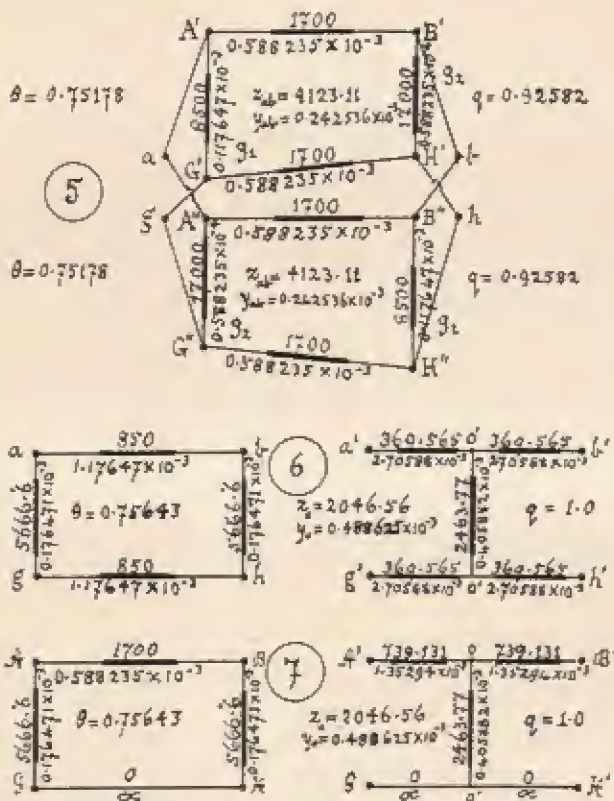 A' 1700 B'
0.588235×10⁻³
θ = 0.75178
8500
0.117647×10⁻³
z_ab = 4123.11
y_ab = 0.242536×10⁻³
17000
0.588235×10⁻⁴
g₂
q = 0.92582
a
G' g₁
1700
0.588235×10⁻³
H' b
5
g A" 1700 B" h
0.588235×10⁻³
θ = 0.75178
17000
0.588235×10⁻⁴
z_ab = 4123.11
y_ab = 0.242536×10⁻³
8500
0.117647×10⁻³
q = 0.92582
g₂
g₂
G" 1700
0.588235×10⁻³
H"
a 850 b
1.17647×10⁻³
5666.6
0.176471×10⁻³
θ = 0.75643
5666.6
0.176471×10⁻³
g 850 h
1.17647×10⁻³
6
a' 360.565 o' 360.565 b'
2.70588×10⁻³ 2.70588×10⁻³
z₀ = 2046.56
y₀ = 0.488625×10⁻³
2463.77
0.405882×10⁻³
q = 1.0
g' 360.565 360.565 h'
2.70588×10⁻³ o' 2.70588×10⁻³
A 1700 B
0.588235×10⁻³
5666.6
0.176471×10⁻³
θ = 0.75643
5666.6
0.176471×10⁻³
0
∞
7
A' 739.131 o 739.131 B'
1.35294×10⁻³ 1.35294×10⁻³
z₀ = 2046.56
y₀ = 0.488625×10⁻³
2463.77
0.405882×10⁻³
q = 1.0
0 0
∞ o' ∞